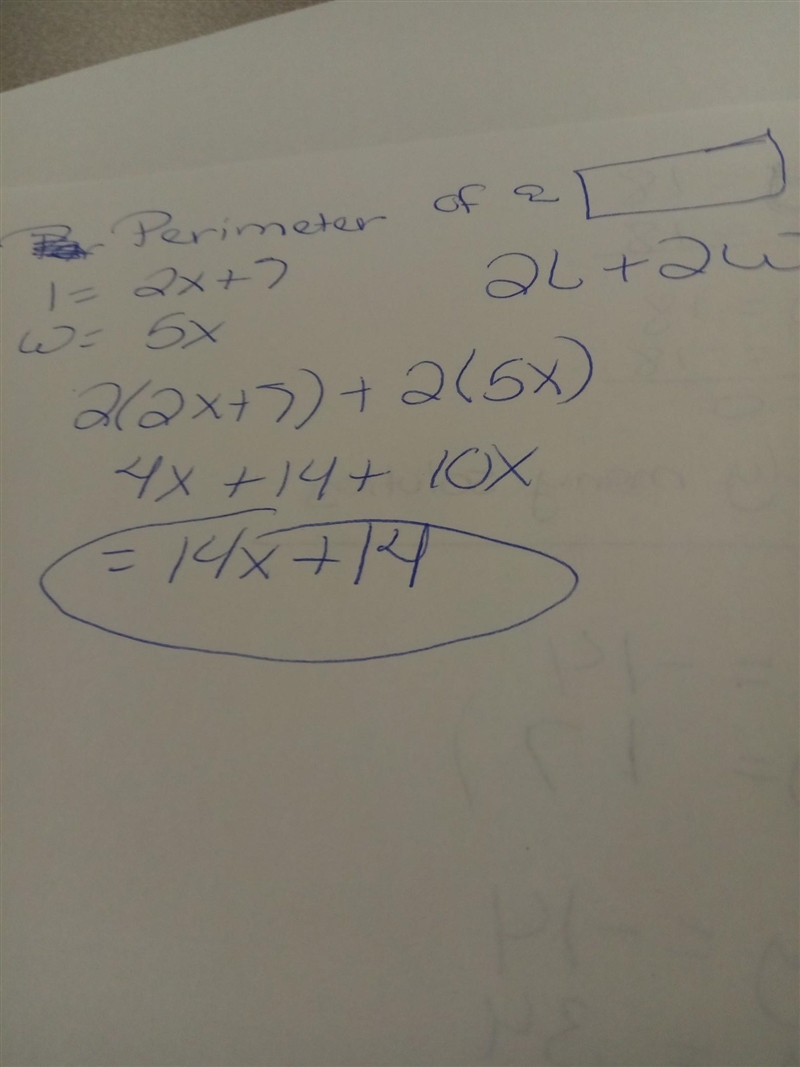 Perimeter of a
l = 2x+7
2L + 2w
w = 5x
2(2x+7) + 2(5x)
4x + 14 + 10x
= 14x + 14
= -14
= 17)
= -14
34